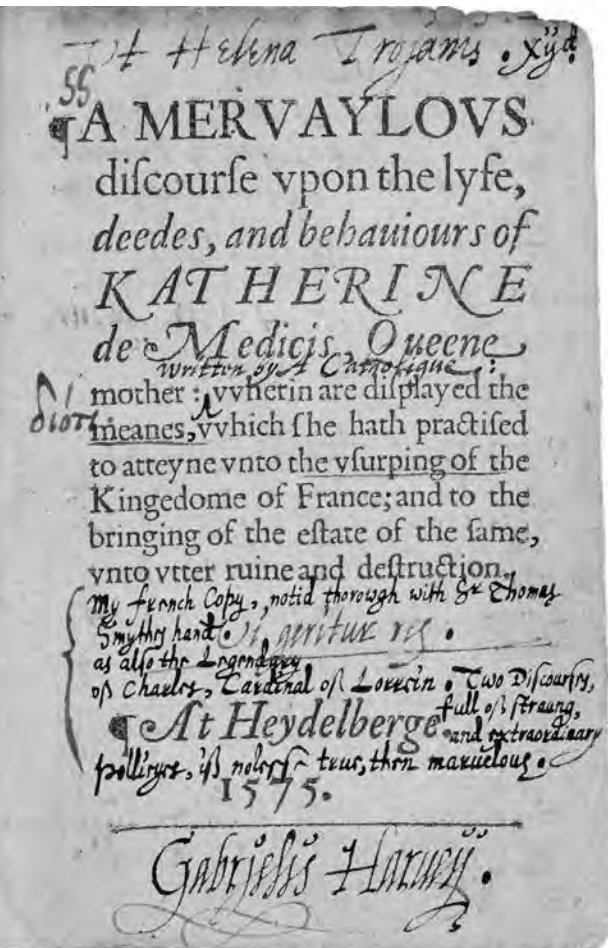 Vt Helena Trojanis . xijd.
55
¶A MERVAYLOVS
diſcourſe vpon the lyfe,
deedes, and behauiours of
KATHERINE
de Medicis, Queene
written by A Catholique :
mother : vvherin are diſplayed the
meanes, vvhich ſhe hath practiſed
to atteyne vnto the vſurping of the
Kingedome of France; and to the
bringing of the eſtate of the ſame,
vnto vtter ruine and deſtruction.
My french Copy, notid thorowgh with Sr Thomas
Smythes hand. Si geritur res .
as alſo the Legendary
of Charles, Cardinal of Lorrein . Two Diſcourſes,
full of ſtraung,
¶At Heydelberge. and extraordinary
pollicyes, if noleſſe true, then maruelous .
1575.
Gabrielis Haruey .